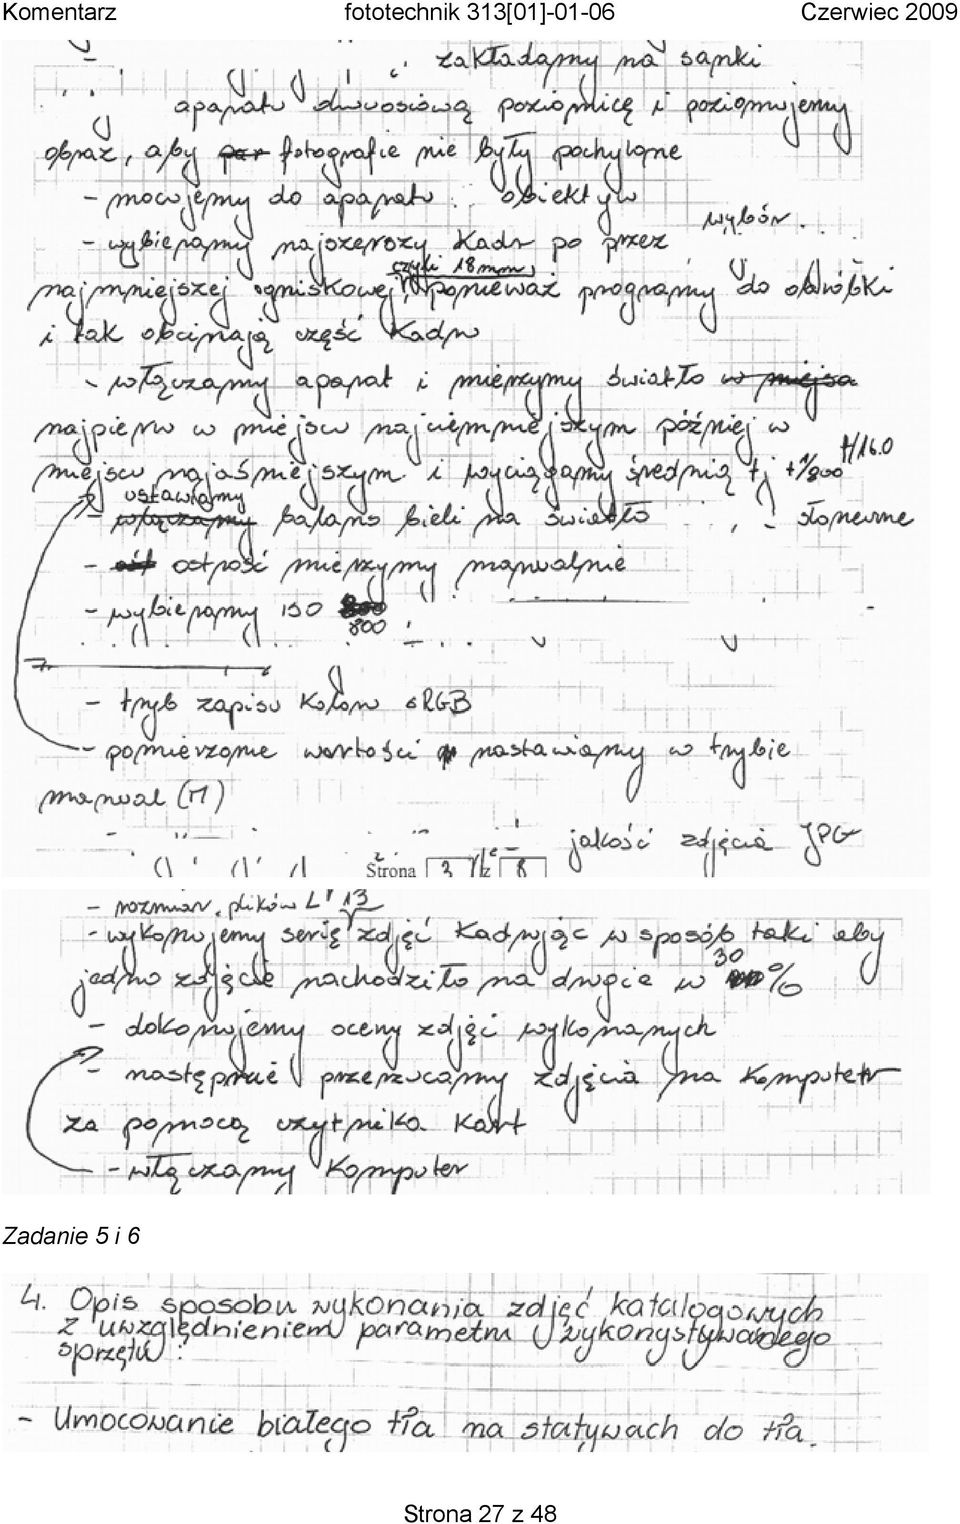 Komentarz fototechnik 313[01]-01-06 Czerwiec 2009
zakładamy na sanki
aparatu dwuosiową poziomicę i poziomujemy
obraz, aby fotografie nie były pochylone
- mocujemy do aparatu obiektyw
- wybieramy najszerszy kadr po przez wybór
czyli 18mm
najmniejszej ogniskowej, ponieważ programy do obróbki
i tak obcinają część kadru
- włączamy aparat i mierzymy światło w miejsca
najpierw w miejscu najciemniejszym później w
miejscu najaśniejszym i wyciągamy średnią tj t1/800 f/16.0
ustawiamy
- włączamy balans bieli na światło słoneczne
- ostrość mierzymy manualnie
- wybieramy ISO 800
800
- tryb zapisu koloru sRGB
- pomierzone wartości nastawiamy w trybie
manual (M)
jakość zdjęcia JPG
Strona 3 z 8
- rozmiar plików L 13
- wykonujemy serię zdjęć kadrując w sposób taki aby
30
jedno zdjęcie nachodziło na drugie w %
- dokonujemy oceny zdjęć wykonanych
- następnie przerzucamy zdjęcia na komputer
za pomocą czytnika kart
- włączamy komputer
Zadanie 5 i 6
4. Opis sposobu wykonania zdjęć katalogowych
z uwzględnieniem parametru wykorzystywanego
sprzętu:
- Umocowanie białego tła na statywach do tła.
Strona 27 z 48